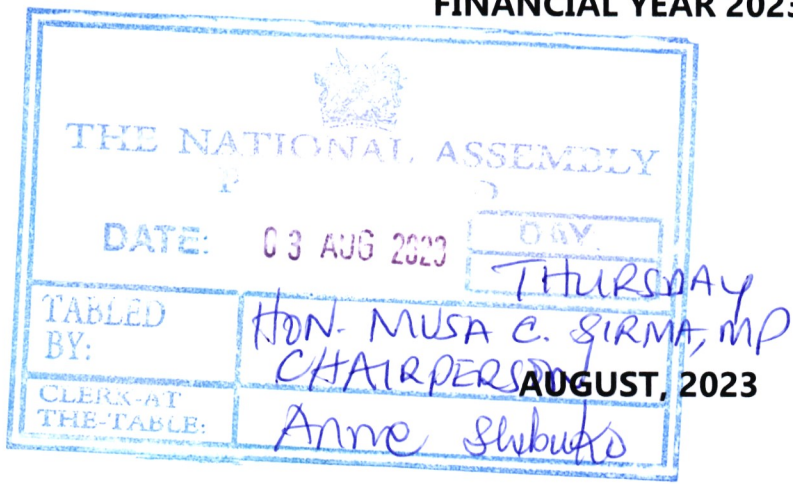 FINANCIAL YEAR 2023
THE NATIONAL ASSEMBLY
P D
DATE: 03 AUG 2023 DAY.
THURSDAY
TABLED BY: HON. MUSA C. SIRMA, MP
CHAIRPERSON
AUGUST, 2023
CLERK-AT THE-TABLE: Anne Shibuko